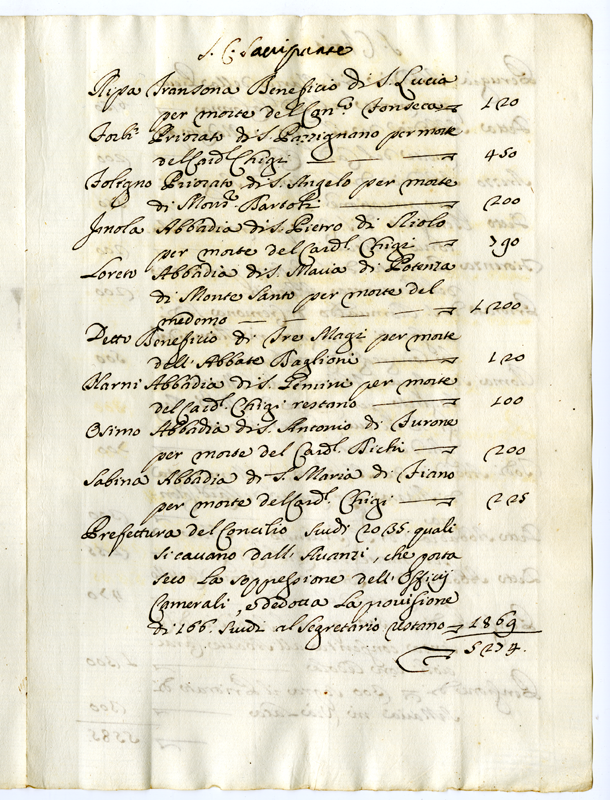 S. C. Sacripante
Ripa Transona Beneficio di S. Lucia
per morte del Can.co Fonseca 120
Priorato di S. Pazzignano per morte
del Card. Chigi 450
Foligno Priorato di S. Angelo per morte
di Mons.r Bartoli 200
Imola Abbadia di S. Pietro di
per morte del Card.l Chigi 790
Loreto Abbadia di S. Maria di Potenza
di Monte Santo per morte del
medemo 1200
Detto Beneficio di Tre Magi per morte
dell'Abbate Baglioni 120
Narni Abbadia di S. Gemine per morte
del Card.l Chigi restano 100
Osimo Abbadia di S. Antonio di Turone
per morte del Card.l Bichi 200
Sabina Abbadia di S. Maria di Fiano
per morte del Card.l Chigi 225
Prefettura del Concilio Scudi 2035. quali
si cavano dall'Avanzi, che porta
seco la soppressione dell'Officij
Camerali, e dedotta la provisione
di 166. scudi al Segretario restano 1869
5274.